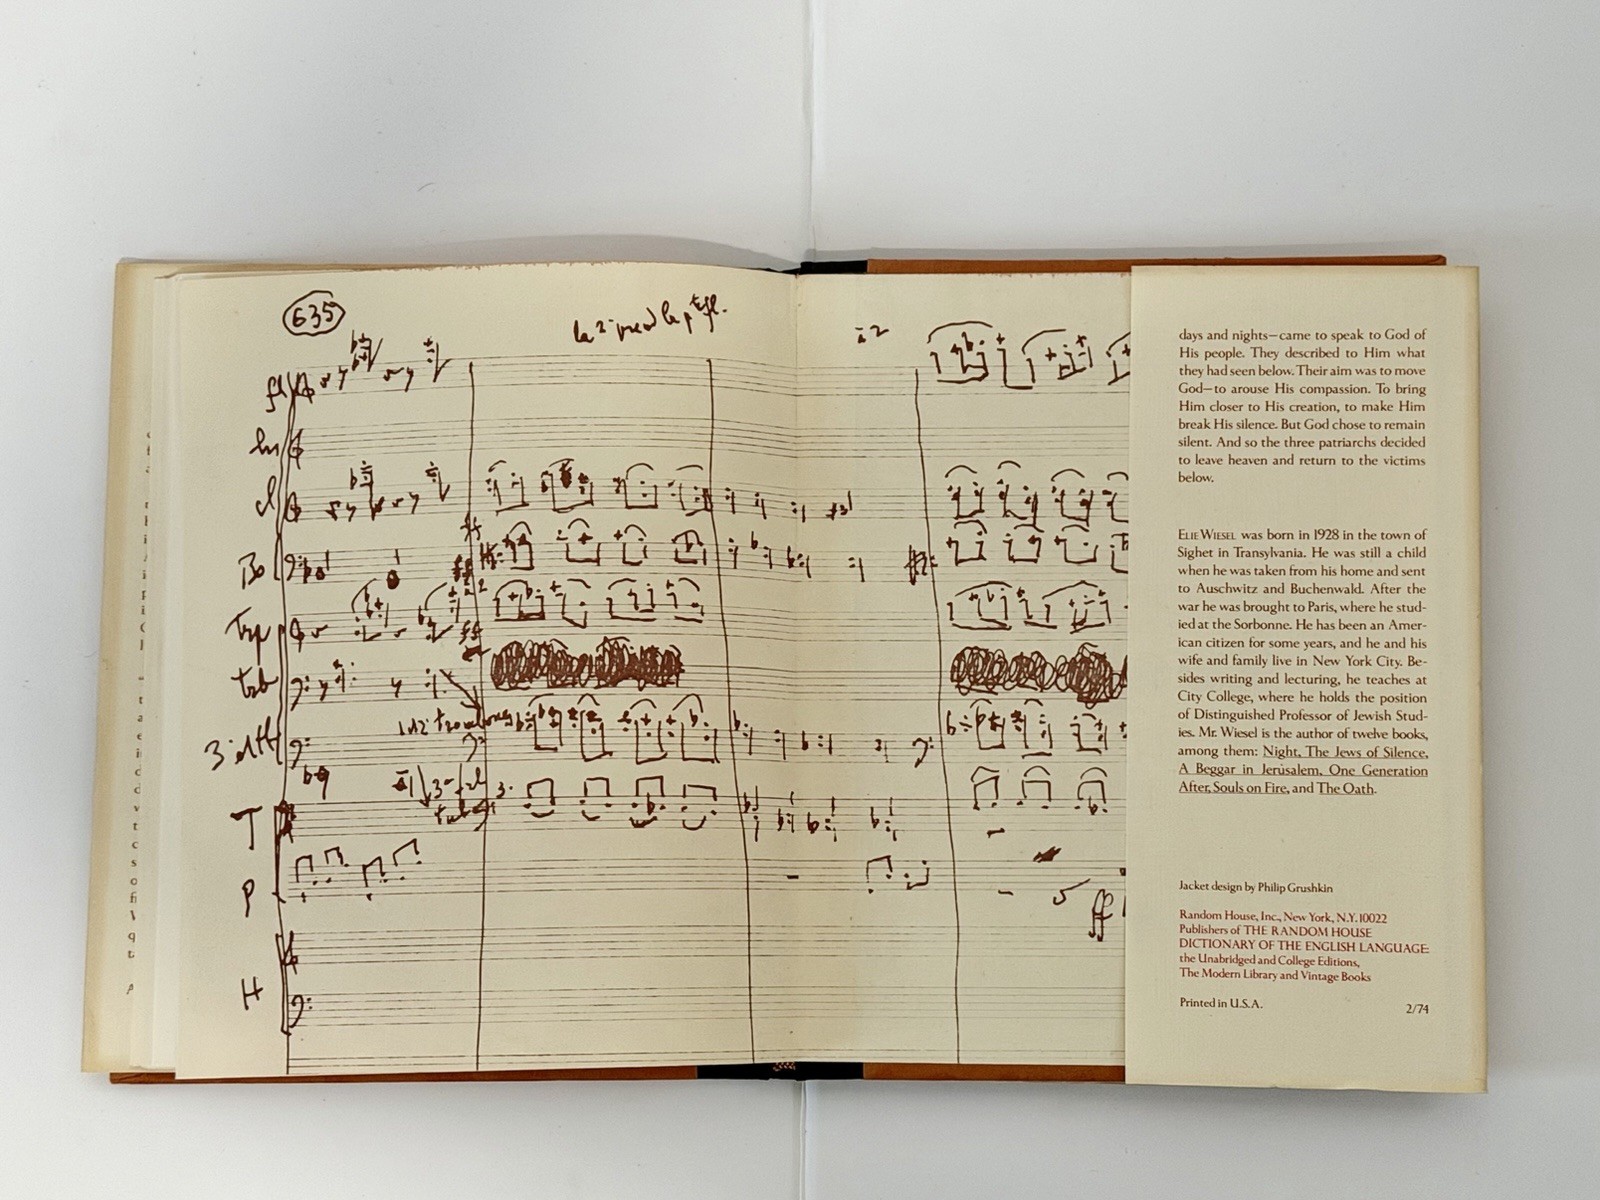 635
ā 2
fl
h
cl
Bo
ff
ff
Trp
ff
trb
1 et 2 trombones
T
P
ff
H
days and nights—came to speak to God of
His people. They described to Him what
they had seen below. Their aim was to move
God—to arouse His compassion. To bring
Him closer to His creation, to make Him
break His silence. But God chose to remain
silent. And so the three patriarchs decided
to leave heaven and return to the victims
below.
ELIE WIESEL was born in 1928 in the town of
Sighet in Transylvania. He was still a child
when he was taken from his home and sent
to Auschwitz and Buchenwald. After the
war he was brought to Paris, where he stud-
ied at the Sorbonne. He has been an Amer-
ican citizen for some years, and he and his
wife and family live in New York City. Be-
sides writing and lecturing, he teaches at
City College, where he holds the position
of Distinguished Professor of Jewish Stud-
ies. Mr. Wiesel is the author of twelve books,
among them: Night, The Jews of Silence,
A Beggar in Jerusalem, One Generation
After, Souls on Fire, and The Oath.
Jacket design by Philip Grushkin
Random House, Inc., New York, N.Y. 10022
Publishers of THE RANDOM HOUSE
DICTIONARY OF THE ENGLISH LANGUAGE:
the Unabridged and College Editions,
The Modern Library and Vintage Books
Printed in U.S.A.
2/74